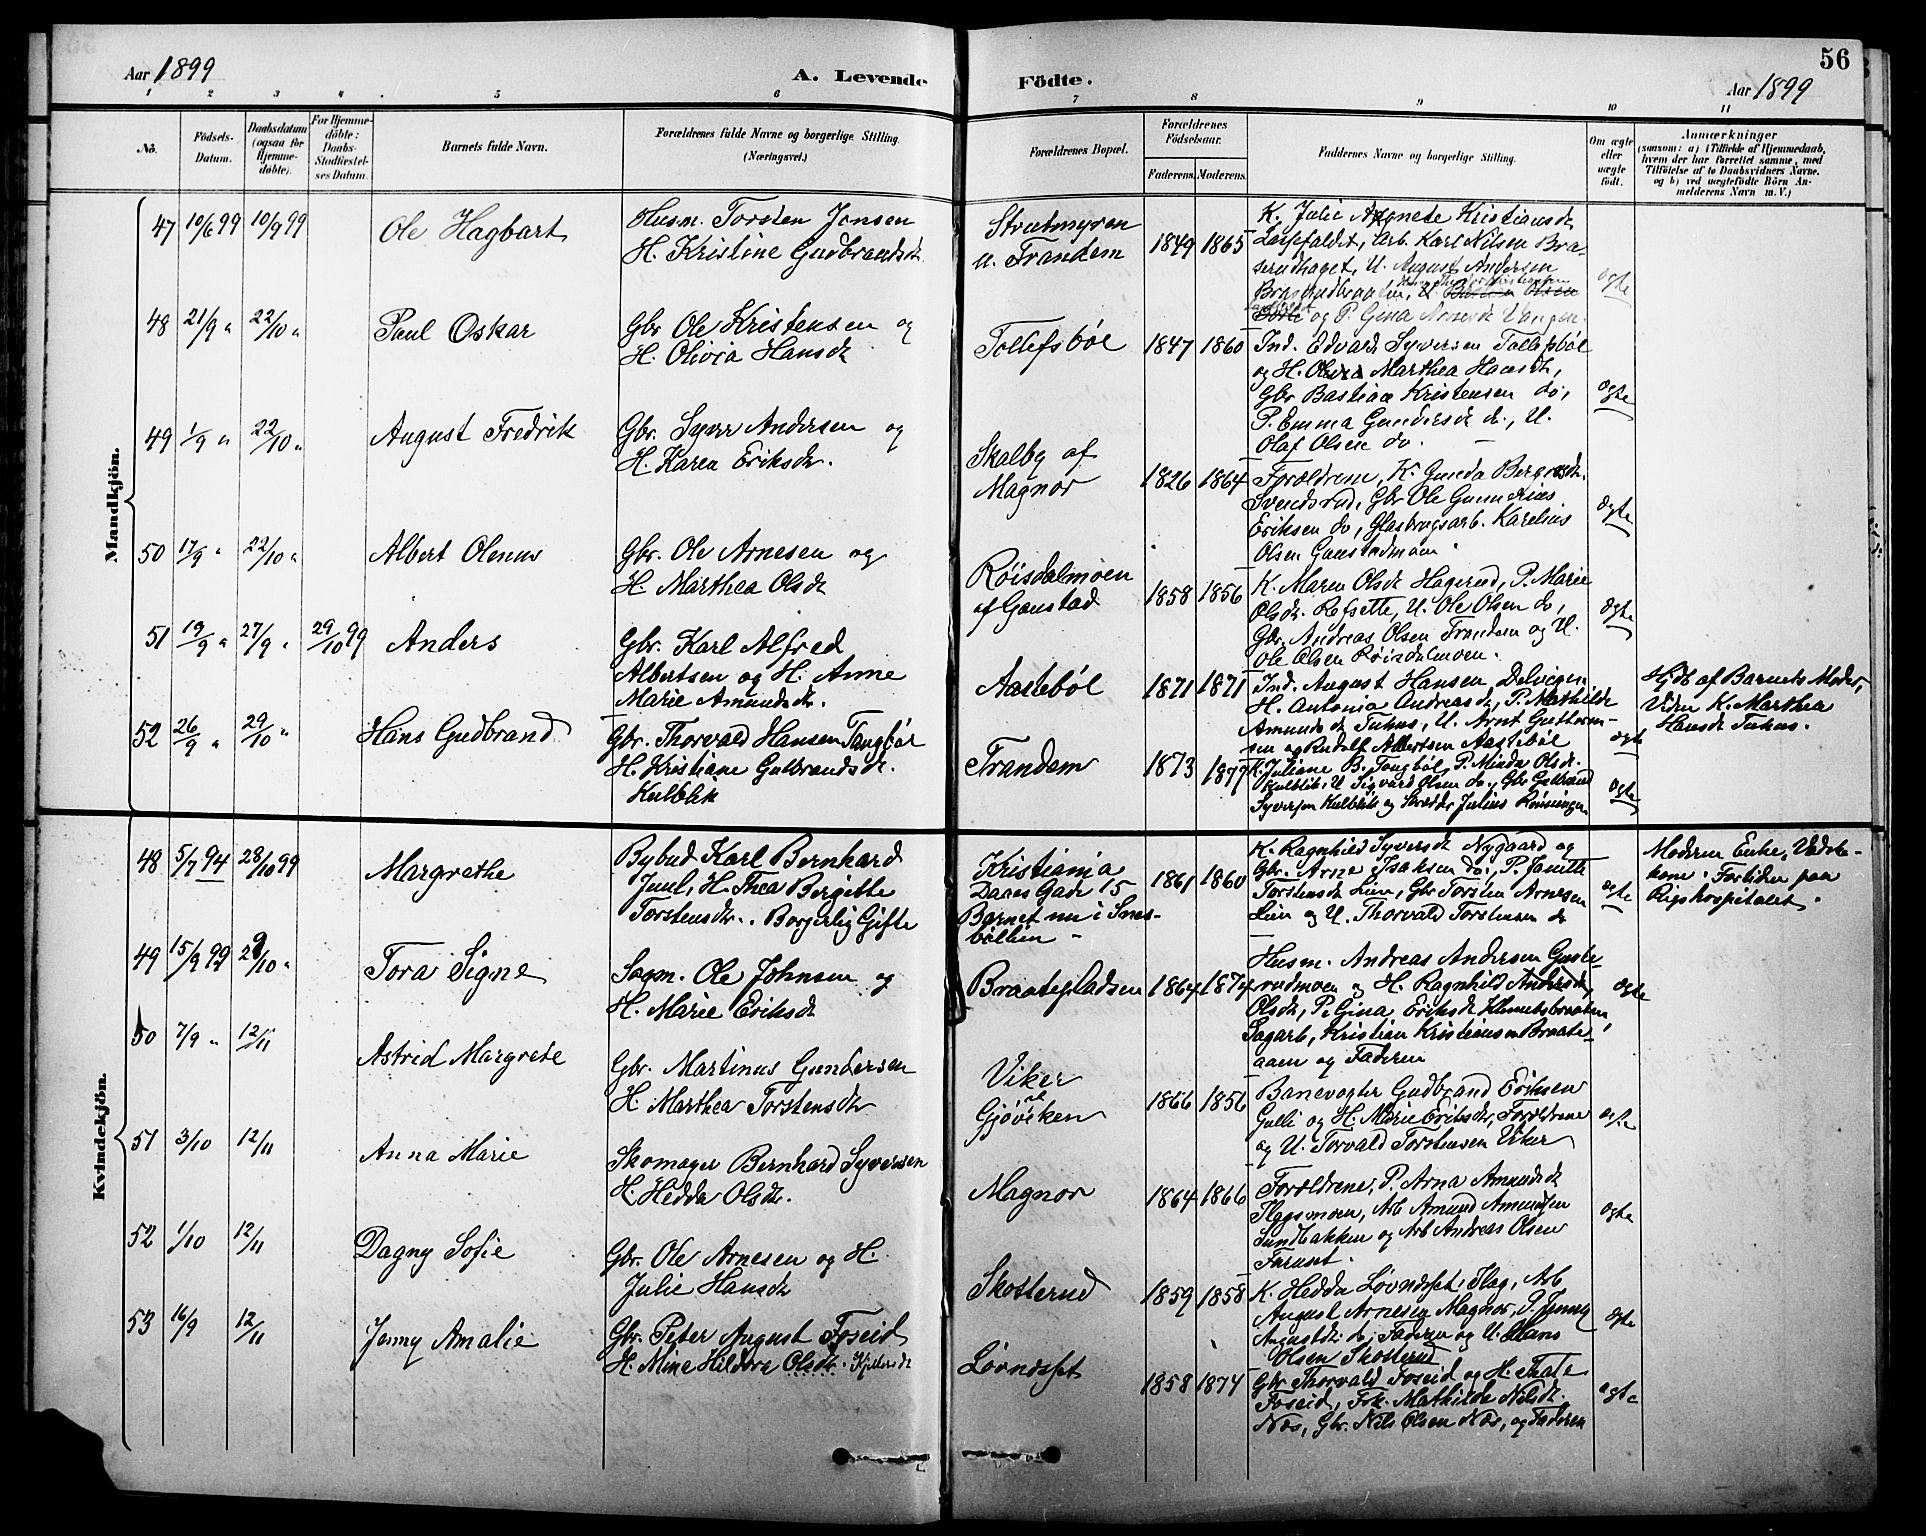 56
Aar 1899
A. Levende Födte.
Aar 1899
1 2 3 4 5 6 7 8 9 10 11
No.
Födsels-
Datum.
Daabsdatum
(ogsaa for
Hjemme-
döbte).
For Hjemme-
döbte:
Daabs-
Stadfæstel-
ses Datum.
Barnets fulde Navn.
Forældrenes fulde Navne og borgerlige Stilling.
(Næringsvei.)
Forældrenes Bopæl.
Forældrenes
Födselsaar.
Faderens. Moderens.
Faddernes Navne og borgerlige Stilling.
Om ægte
eller
uægte
födt.
Anmærkninger
(saasom: a) i Tilfælde af Hjemmedaab,
hvem der har forrettet samme, med
Tilföielse af to Daabsvidners Navne,
og b) ved uægtefödte Börn An-
melderens Navn m. V.)
Mandkjön.
47 10/6 99 10/9 99
Ole Hagbart
Husm. Torsten Jensen
H. Kristine Gudbrandsdt.
Strætmyren
u. Trandem
1849 1865
K. Julie Agnete Kristiansdt
Lassefaldet, Arb. Karl Nilsen Bra-
serudhaget, U. August Andersen
og P. Gina Arnesdt Vangen.
ægte
48 21/9 " 22/10 "
Paul Oskar
Gbr. Ole Kristensen og
H. Olivia Hansdt
Tollefsbøl
1847 1860
Ind. Edvard Syversen Tollefsbøl
og H. Marthea Hansdt,
Gbr Bastian Kristensen do,
P. Emma Gundersdt do, U.
Olaf Olsen do.
ægte
49 1/9 " 22/10 "
August Fredrik
Gbr. Syver Andersen og
H. Karen Eriksdt.
Skalby af
Magnor
1826 1864
Forældrene, K. Gunda Bergersdt.
Svendsrud, Gbr Ole Gunerius
Eriksen do, Glasbrugsarb. Karelius
Olsen Gaustadmoen.
ægte
50 17/9 " 22/10 "
Albert Olenus
Gbr. Ole Arnesen og
H. Marthea Olsdt
Røisdalmoen
af Gaustad
1858 1856
K. Maren Olsdt Hagerud, P. Marie
Olsdt. Rofsette, U. Ole Olsen do,
Gbr. Andreas Olsen Trandem og U.
Ole Olsen Røisdalmoen.
ægte
51 19/9 " 27/9 " 29/10 99
Anders
Gbr. Karl Alfred
Albertsen og H. Anne
Marie Amundsdt.
Aastebøl
1871 1871
Ind. August Hansen Delvigen
H. Antonia Andreasdt, P. Mathilde
Amundsdt Tuhus, U. Arnt Guttorm-
sen og Rudolf Albertsen Aastebøl
ægte
Hjdt. af Barnets Moder,
Viden K. Marthea
Hansdt Tuhus.
52 26/9 " 29/10 "
Hans Gudbrand
Gbr. Thorvald Hansen Tangbøl
H. Kristiane Gulbrandsdt.
Kulblik
Trandem
1873 1877
K. Juliane B. Tangbøl, P. Minda Olsdt.
Kulblik, U. Sigvard Olsen do, Gbr Gulbrand
Syversen Kulblik og Skrædder Julius Rønningen
ægte
Kvindekjön.
48 5/7 94 28/10 99
Margrethe
Bybud Karl Bernhard
Juul, H. Thea Bergitte
Torstensdtr. Borgerlig Gifte
Kristiania
Daaes Gade 15
Barnet nu i Snes-
bøllien
1861 1860
K. Ragnhild Syversdt Nygaard og
Gbr. Arne Isaksen do, P. Janette
Torstensdt Lien, Gbr Torsten Arnesen
Lien og U. Thorvald Torstensen do
ægte
Moderen Enke, Vadske-
kone. Fortiden paa
Rigshospitalet.
49 15/9 99 29/10 "
Tora Signe
Sagm. Ole Johnsen og
H. Marie Eriksdt
Braatepladsen
1864 1874
Husm. Andreas Andersen Gaste-
rudmoen og H. Ragnhild Andersdt
Olsdt, P. Gina Eriksdt Klemetsbraaten,
Sagarb. Kristian Kristiansen Braate-
aaen og Faderen
ægte
50 7/9 " 12/11
Astrid Margrete
Gbr. Martinus Gundersen
H. Marthea Torstensdt
Viker
af
Gjøviken
1866 1856
Banevogter Gudbrand Eriksen
Gulli og H. Marie Eriksdt, Forældrene
og U. Torvald Torstensen Viker
ægte
51 3/10 12/11
Anna Marie
Skomager Bernhard Syversen
H. Hedda Olsdt.
Magnor
1864 1866
Forældrene, P. Arna Amundsdt
Flagsmoen, Arb Amund Amundsen
Sundbakken og Arb Andreas Olsen
Faruset.
ægte
52 1/10 12/11
Dagny Sofie
Gbr. Ole Arnesen og H.
Julie Hansdt
Skosterud
1859 1858
K. Hedda Løvndset, Flag, Arb
August Arnesen Magnor, P. Jenny
Augustdt do, Faderen og U. Hans
Olsen Skosterud
ægte
53 16/9 12/11
Jenny Amalie
Gbr. Peter August Foseid
H. Mine Hildora Olsdt.
Løvndset
1858 1874
Gbr. Thorvald Foseid og H. Thale
Foseid, Frk. Mathilde Nilsdt.
Næs, Gbr. Nils Olsen Næs, og Faderen
ægte